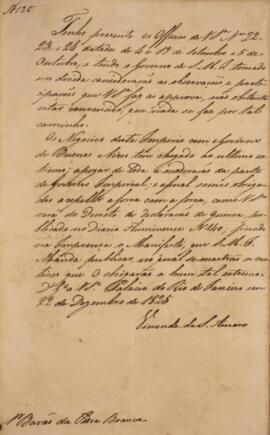 Nº 128
Tenho presente os Officios de V.S.ª Nos 22
23, e 24 datados de 4 e 19 de Setembro e 5 de
Outubro, e tendo o Governo de S. M. I. tomado
em devida consideração as observações, e parti-
cipações que V.S.ª faz as approva, não obstante
estar convencido, que nada se faz por tal
caminho.
Os Negocios deste Imperio com o Governo
de Buenos Ayres tem chegado ao ultimo ex-
tremo; apezar de toda a moderação da parte
do Gabinete Imperial; e afinal somos obriga-
dos a repellir a força com a força, como V.S.ª
verá do Decreto de Declaração de Guerra, pu-
blicado no Diario Fluminense Nº 150, ficando
na Imprensa o Manifesto, que S. M. I.
Manda publicar, no qual se mostrão os mo-
tivos que O obrigarão a hum tal extremo.
D.s G.e a V.S.ª Palacio do Rio de Janeiro em
22 de Dezembro de 1825
Visconde de S. Amaro
Sr. Barão da Pedra Branca